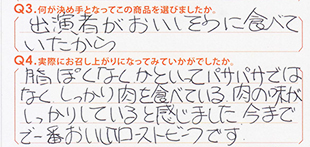 Q3.何が決め手となってこの商品を選びましたか。
出演者がおいしそうに食べて
いたから
Q4.実際にお召し上がりになってみていかがでしたか。
脂ぽくなくかといってパサパサでは
なく しっかり肉を食べている 肉の味が
しっかりしていると感じました 今まで
で一番おいしいローストビーフです